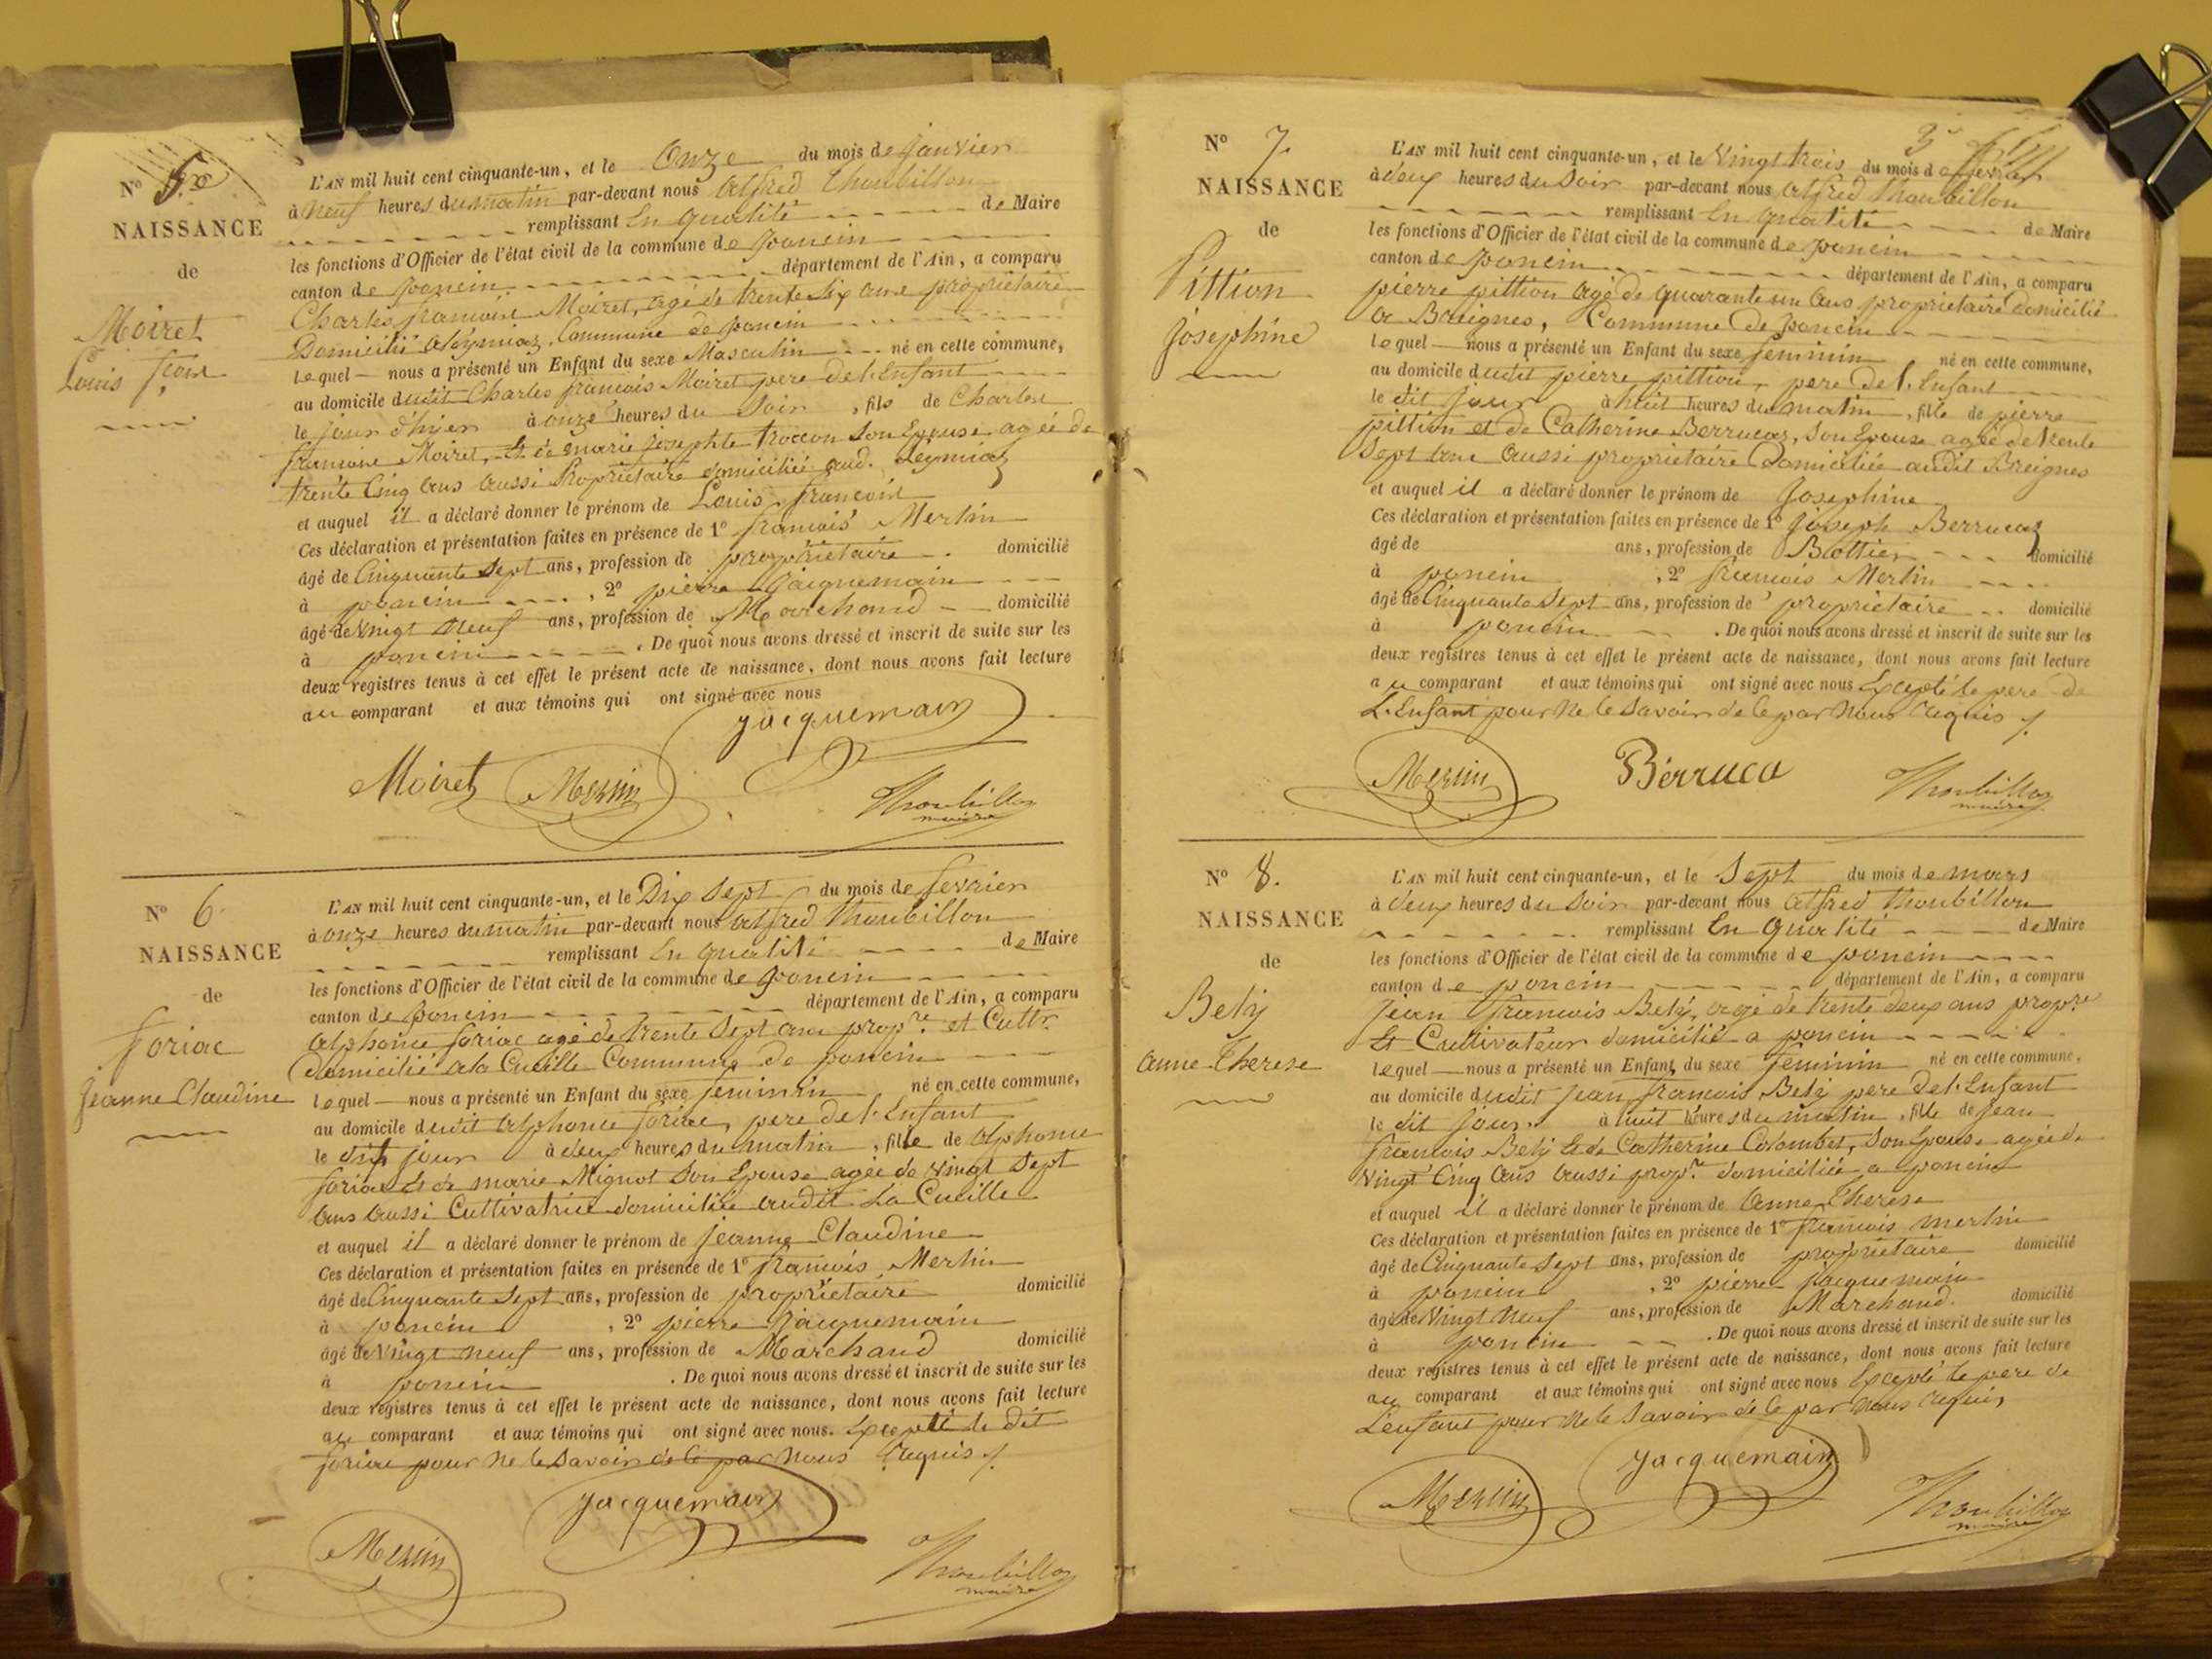 Nº 5.
NAISSANCE
de
Moiret
Louis
L'AN mil huit cent cinquante-un, et le Onze du mois de janvier
à neuf heures du matin par-devant nous alfred thoubillon
remplissant En qualité de Maire
les fonctions d'Officier de l'état civil de la commune de poncin
canton de poncin département de l'Ain, a comparu
Charles francois Moiret, agé de trente six ans propriétaire
Domicilié a leymiaz, Commune de poncin
lequel nous a présenté un Enfant du sexe Masculin né en cette commune,
au domicile dudit Charles francois Moiret pere de l'Enfant
le jour d'hyer à onze heures du soir, fils de Charles
francois Moiret, Et de marie josephte trocon son Epouse agée de
trente Cinq ans aussi Propriétaire domiciliée aud. Leymiaz
et auquel il a déclaré donner le prénom de Louis francois
Ces déclaration et présentation faites en présence de 1º francois Merlin
âgé de Cinquante sept ans, profession de propriétaire domicilié
à poncin, 2º pierre jacquemain
âgé de vingt neuf ans, profession de Marchand domicilié
à poncin. De quoi nous avons dressé et inscrit de suite sur les
deux registres tenus à cet effet le présent acte de naissance, dont nous avons fait lecture
au comparant et aux témoins qui ont signé avec nous
jacquemain
Moiret Merlin Thoubillon
maire
Nº 6.
NAISSANCE
de
foriac
jeanne Claudine
L'AN mil huit cent cinquante-un, et le Dix sept du mois de fevrier
à onze heures du matin par-devant nous alfred thoubillon
remplissant En qualité de Maire
les fonctions d'Officier de l'état civil de la commune de poncin
canton de poncin département de l'Ain, a comparu
alphonse foriac agé de trente sept ans prop.re et Cultr.
domicilié a la Cueille Commune de poncin
lequel nous a présenté un Enfant du sexe feminin né en cette commune,
au domicile dudit alphonse foriac, pere de l'Enfant
le dit jour à deux heures du matin, fille de alphonse
foriac et de marie Mignot son Epouse agée de vingt sept
ans aussi Cultivatrice domiciliée audit La Cueille
et auquel il a déclaré donner le prénom de jeanne Claudine
Ces déclaration et présentation faites en présence de 1º francois Merlin
âgé de Cinquante sept ans, profession de propriétaire domicilié
à poncin, 2º pierre jacquemain
âgé de vingt neuf ans, profession de Marchand domicilié
à poncin. De quoi nous avons dressé et inscrit de suite sur les
deux registres tenus à cet effet le présent acte de naissance, dont nous avons fait lecture
au comparant et aux témoins qui ont signé avec nous. Excepté le dit
foriac pour ne le savoir de ce par nous requis
jacquemain
Merlin Thoubillon
maire
3
Nº 7.
NAISSANCE
de
Pittion
josephine
L'AN mil huit cent cinquante-un, et le vingt trois du mois de fevrier
à deux heures du soir par-devant nous alfred thoubillon
remplissant En qualité de Maire
les fonctions d'Officier de l'état civil de la commune de poncin
canton de poncin département de l'Ain, a comparu
pierre pittion agé de quarante un ans propriétaire domicilié
a Breignes, Commune de poncin
lequel nous a présenté un Enfant du sexe feminin né en cette commune,
au domicile dudit pierre pittion, pere de l'Enfant
le dit jour à huit heures du matin, fille de pierre
pittion et de Catherine Berrucaz, son Epouse agée de trente
sept ans aussi propriétaire domiciliée audit Breignes
et auquel il a déclaré donner le prénom de josephine
Ces déclaration et présentation faites en présence de 1º joseph Berrucaz
âgé de ans, profession de Bottier domicilié
à poncin, 2º francois Merlin
âgé de Cinquante sept ans, profession de propriétaire domicilié
à poncin. De quoi nous avons dressé et inscrit de suite sur les
deux registres tenus à cet effet le présent acte de naissance, dont nous avons fait lecture
au comparant et aux témoins qui ont signé avec nous Excepté le pere de
L'Enfant pour ne le savoir de ce par nous requis
Merlin Bérruca Thoubillon
maire
Nº 8.
NAISSANCE
de
Bely
anne Therese
L'AN mil huit cent cinquante-un, et le Sept du mois de mars
à deux heures du soir par-devant nous alfred thoubillon
remplissant En qualité de Maire
les fonctions d'Officier de l'état civil de la commune de poncin
canton de poncin département de l'Ain, a comparu
jean francois Bely, agé de trente deux ans propre
Et Cultivateur domicilié a poncin
lequel nous a présenté un Enfant du sexe feminin né en cette commune,
au domicile dudit jean francois Bely pere de l'Enfant
le dit jour à huit heures du matin, fille de jean
francois Bely Et de Catherine Colombet, son Epouse agée de
vingt Cinq ans aussi prop.re domiciliée a poncin
et auquel il a déclaré donner le prénom de anne Therese
Ces déclaration et présentation faites en présence de 1º francois merlin
âgé de Cinquante sept ans, profession de propriétaire domicilié
à poncin, 2º pierre jacquemain
âgé de vingt neuf ans, profession de Marchand. domicilié
à poncin. De quoi nous avons dressé et inscrit de suite sur les
deux registres tenus à cet effet le présent acte de naissance, dont nous avons fait lecture
au comparant et aux témoins qui ont signé avec nous Excepté le pere de
L'enfant pour ne le savoir de ce par nous requis
jacquemain
Merlin Thoubillon
maire